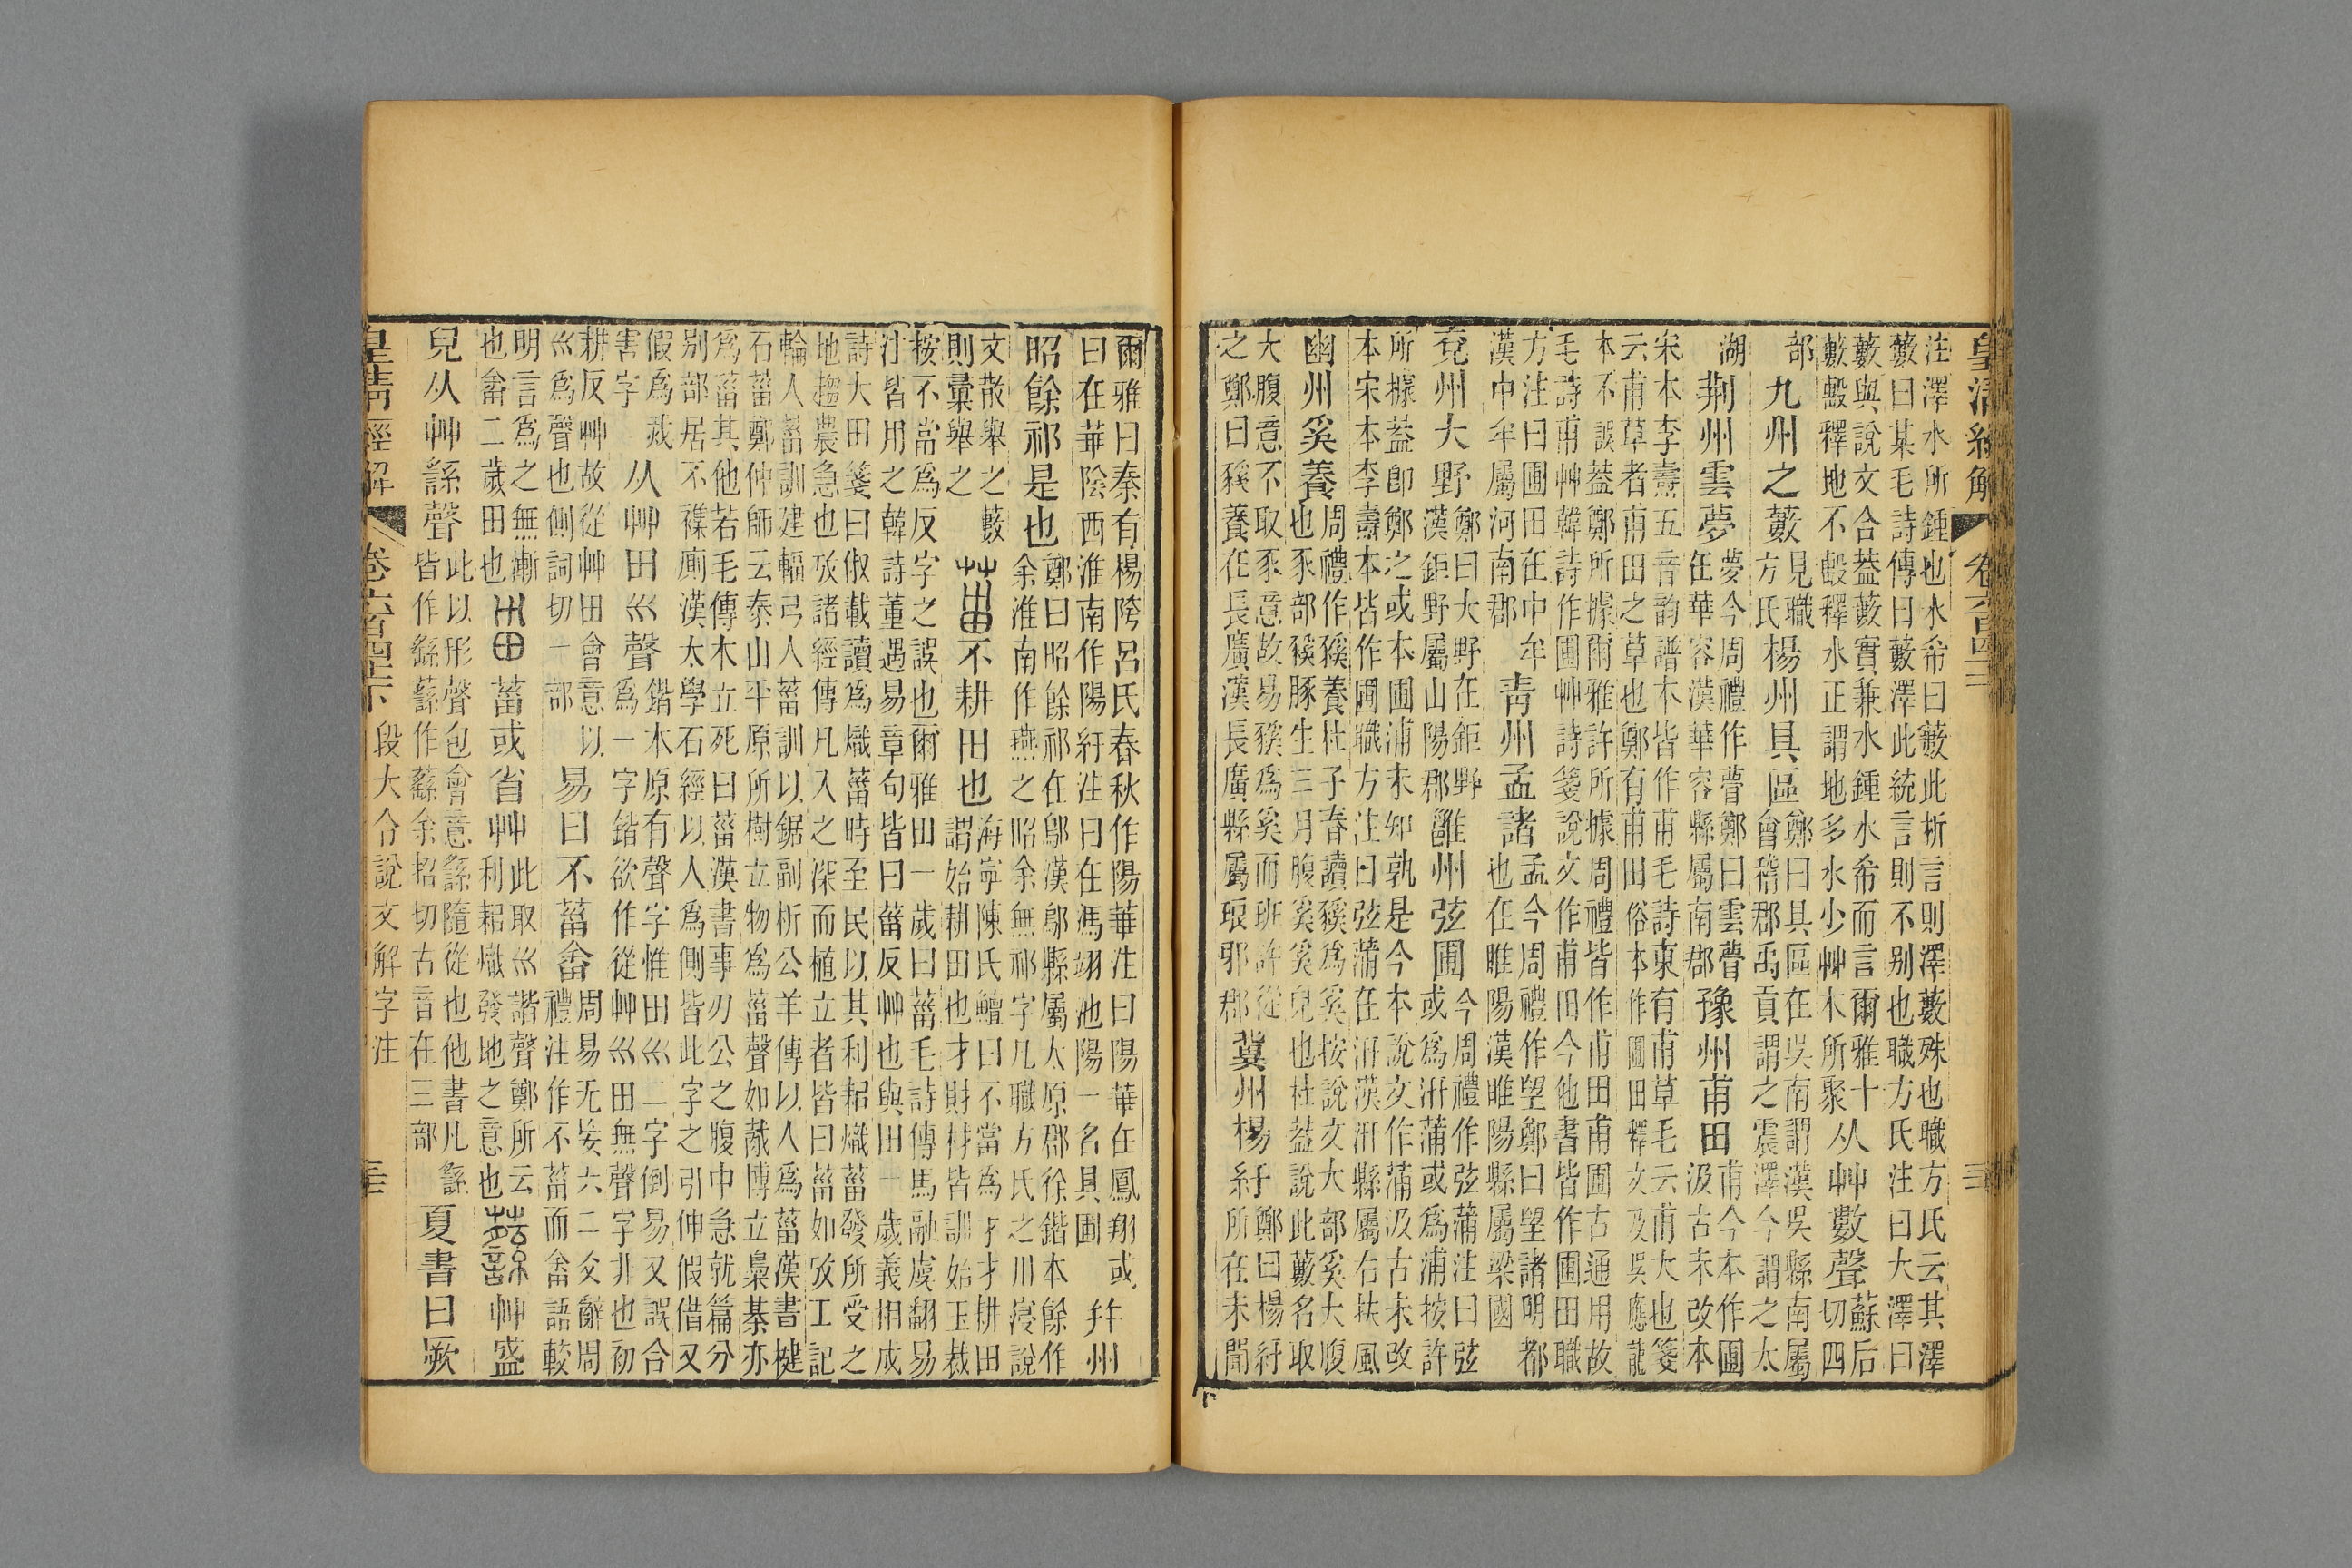 皇清經解
注澤水所鍾也水希曰藪此析言則澤藪殊也職方氏云其澤
藪曰某毛詩傳曰藪澤此統言則不别也職方氏注曰大澤曰
藪藪與說文合葢藪實兼水鍾水希而言爾雅十
藪毄釋地不毄釋水正謂地多水少艸木所聚
从艸數聲
蘇后
切四
部
九州之藪
見職
方氏
楊州具區
鄭曰具區在吳南謂漢吳縣南屬
會稽郡禹貢謂之震澤今謂之太
湖
荆州雲夢
夢今周禮作瞢鄭曰雲瞢
在華容漢華容縣屬南郡
豫州甫田
甫今本作圃
汲古未改本
宋本李燾五音韵譜本皆作甫毛詩東有甫草毛云甫大也箋
云甫草者甫田之草也鄭有甫田俗本作圃田釋文及吳應龍
本不誤葢鄭所據爾雅許所據周禮皆作甫田甫圃古通用故
毛詩甫艸韓詩作圃艸詩箋說文作甫田今他書皆作圃田職
方注曰圃田在中牟
漢中牟屬河南郡
青州孟諸
孟今周禮作望鄭曰望諸明都
也在睢陽漢睢陽縣屬梁國
兗州大野
鄭曰大野在鉅野
漢鉅野屬山陽郡
雝州弦圃
今周禮作弦蒲注曰弦
或爲汧蒲或爲浦按許
所據葢卽鄭之或本圃浦未知孰是今本說文作蒲汲古未改
本宋本李燾本皆作圃職方注曰弦蒲在汧漢汧縣屬右扶風
幽州奚養
周禮作豯養杜子春讀豯爲奚按說文大部奚大腹
也豕部豯豚生三月腹奚奚皃也杜葢說此藪名取
大腹意不取豕意故易豯爲奚而班許從
之鄭曰豯養在長廣漢長廣縣屬琅邪郡
冀州楊紆
鄭曰楊紆
所在未聞
爾雅曰秦有楊陓呂氏春秋作陽華注曰陽華在鳳翔或
曰在華陰西淮南作陽紆注曰在馮翊池陽一名具圃
幷州
昭餘祁是也
鄭曰昭餘祁在鄔漢鄔縣屬太原郡徐鍇本餘作
余淮南作燕之昭余無祁字凡職方氏之川寖說
文散舉之藪
則彙舉之
菑不耕田也
海寧陳氏鱣曰不當爲才才耕田
謂始耕田也才財材皆訓始玉裁
按不當爲反字之誤也爾雅田一歲曰菑毛詩傳馬融虞翻易
注皆用之韓詩董遇易章句皆曰菑反艸也與田一歲義相成
詩大田箋曰俶載讀爲熾菑時至民以其利耜熾菑發所受之
地趨農急也攷諸經傳凡入之深而植立者皆曰菑如攷工記
輪人菑訓建輻弓人菑訓以鋸副析公羊傳以人爲菑漢書楗
石菑鄭仲師云泰山平原所樹立物爲菑聲如胾博立梟棊亦
爲菑其他若毛傳木立死曰菑漢書事刃公之腹中急就篇分
别部居不襍廁漢太學石經以人爲側皆此字之引伸假借又
假爲烖
害字
从艸田巛聲
鍇本原有聲字惟田巛二字倒易又誤合
爲一字鍇欲作從艸巛田無聲字非也初
耕反艸故從艸田會意以
巛爲聲也側詞切一部
易曰不菑畬
周易无妄六二爻辭周
禮注作不菑而畬語較
明言爲之無漸
也畬二歲田也
甾
菑或省艸
此取巛諧聲鄭所云
利耜熾發地之意也
䔄
艸盛
皃从艸繇聲
此以形聲包會意繇隨從也他書凡繇
皆作繇蘨作蘨余招切古音在三部
夏書曰厥
皇清經解
卷六百四十一下
段大令說文解字注
三三